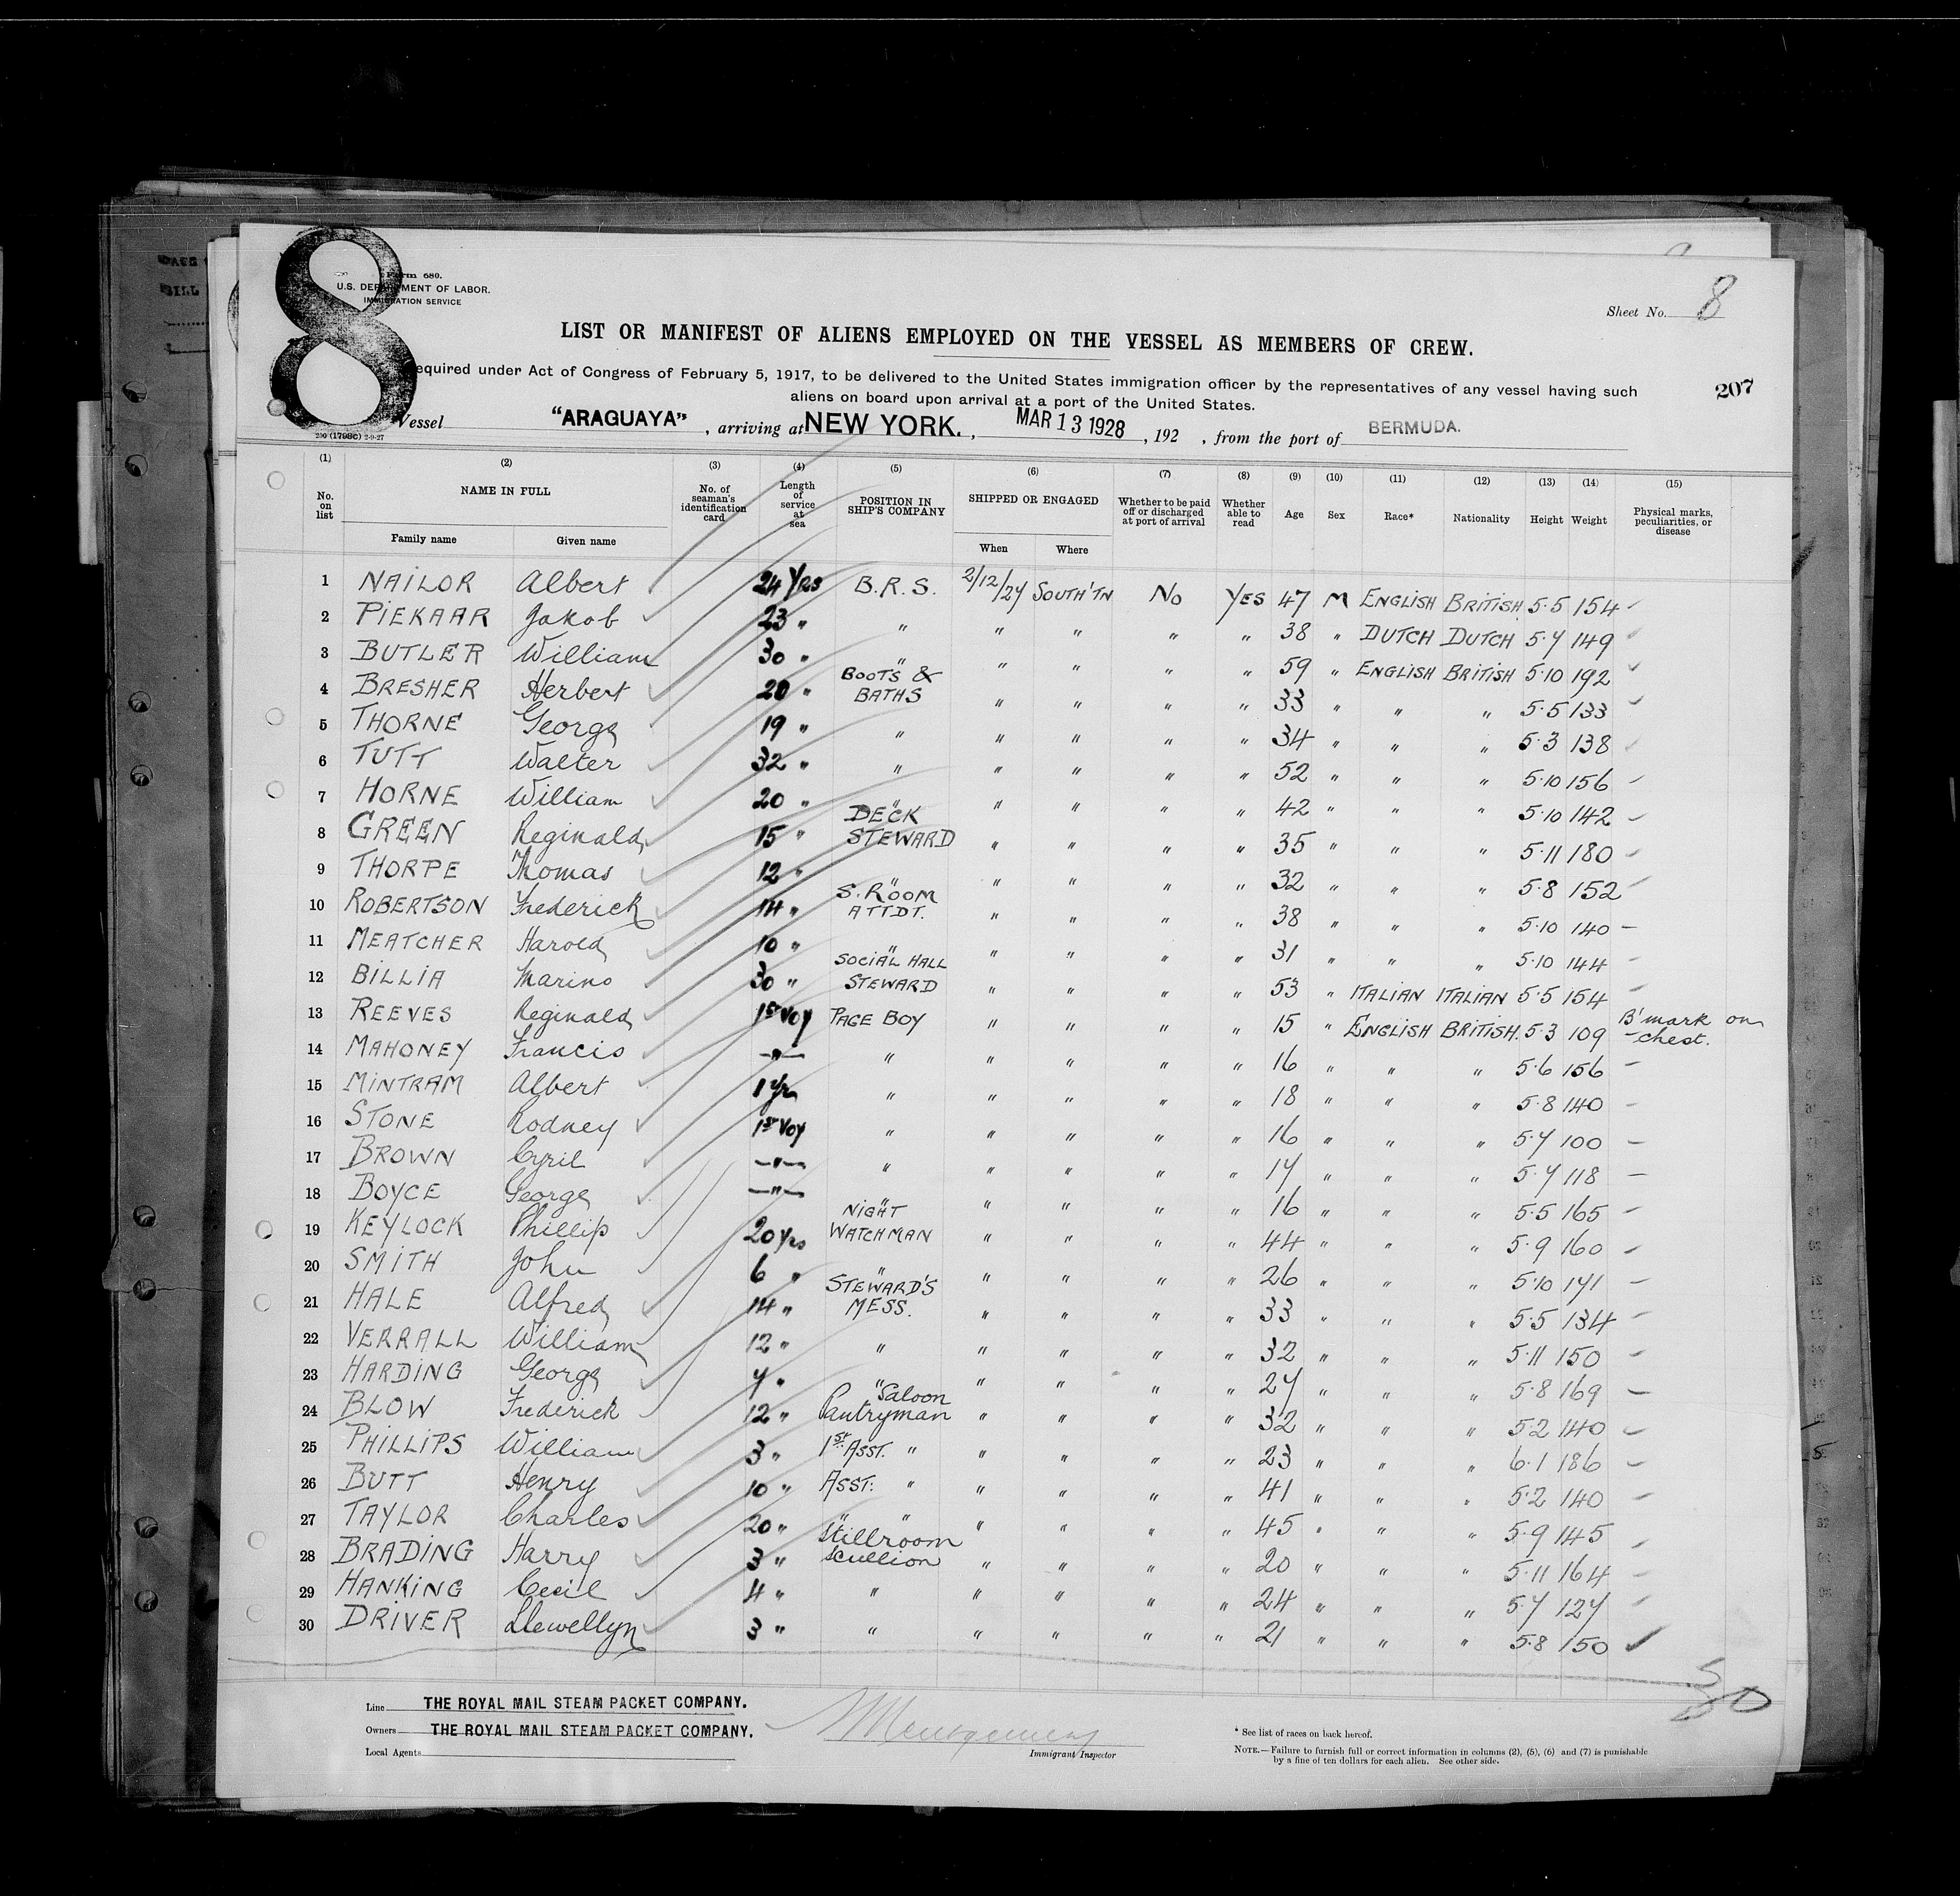 8
Form 680.
U.S. DEPARTMENT OF LABOR.
IMMIGRATION SERVICE
Sheet No. 8
LIST OR MANIFEST OF ALIENS EMPLOYED ON THE VESSEL AS MEMBERS OF CREW.
equired under Act of Congress of February 5, 1917, to be delivered to the United States immigration officer by the representatives of any vessel having such
aliens on board upon arrival at a port of the United States.
207
Vessel "ARAGUAYA", arriving at NEW YORK., MAR 13 1928, 192 , from the port of BERMUDA.
(1) (2) (3) (4) (5) (6) (7) (8) (9) (10) (11) (12) (13) (14) (15)
No. on list NAME IN FULL Family name Given name No. of seaman's identification card Length of service at sea POSITION IN SHIP'S COMPANY SHIPPED OR ENGAGED When Where Whether to be paid off or discharged at port of arrival Whether able to read Age Sex Race* Nationality Height Weight Physical marks, peculiarities, or disease
1 NAILOR Albert 24 Yrs B.R.S. 2/12/27 SOUTH'TN No YES 47 M ENGLISH BRITISH 5.5 154
2 PIEKAAR Jakob 23 " " " " " " 38 " DUTCH DUTCH 5.7 149
3 BUTLER William 30 " " " " " " 59 " ENGLISH BRITISH 5.10 192
4 BRESHER Herbert 20 " BOOTS & BATHS " " " " 33 " " " 5.5 133
5 THORNE George 19 " " " " " " 34 " " " 5.3 138
6 TUTT Walter 32 " " " " " " 52 " " " 5.10 156
7 HORNE William 20 " " " " " " 42 " " " 5.10 142
8 GREEN Reginald 15 " DECK STEWARD " " " " 35 " " " 5.11 180
9 THORPE Thomas 12 " " " " " " 32 " " " 5.8 152
10 ROBERTSON Frederick 14 " S. ROOM ATTDT. " " " " 38 " " " 5.10 140
11 MEATCHER Harold 10 " " " " " " 31 " " " 5.10 144
12 BILLIA Marino 30 " SOCIAL HALL STEWARD " " " " 53 " ITALIAN ITALIAN 5.5 154
13 REEVES Reginald 1st Voy PAGE BOY " " " " 15 " ENGLISH BRITISH. 5.3 109 B'mark on chest.
14 MAHONEY Francis " " " " " " 16 " " " 5.6 156
15 MINTRAM Albert 1 yr " " " " " 18 " " " 5.8 140
16 STONE Rodney 1st Voy " " " " " 16 " " " 5.7 100
17 BROWN Cyril " " " " " " 17 " " " 5.7 118
18 BOYCE George " " " " " " 16 " " " 5.5 165
19 KEYLOCK Phillip 20 yrs NIGHT WATCHMAN " " " " 44 " " " 5.9 160
20 SMITH John 6 " " " " " " 26 " " " 5.10 171
21 HALE Alfred 14 " STEWARD'S MESS. " " " " 33 " " " 5.5 134
22 VERRALL William 12 " " " " " " 32 " " " 5.11 150
23 HARDING George 7 " " " " " " 27 " " " 5.8 169
24 BLOW Frederick 12 " Saloon Pantryman " " " " 32 " " " 5.2 140
25 PHILLIPS William 3 " 1st ASST. " " " " " 23 " " " 6.1 186
26 BUTT Henry 10 " ASST: " " " " " 41 " " " 5.2 140
27 TAYLOR Charles 20 " " " " " " " 45 " " " 5.9 145
28 BRADING Harry 3 " Stillroom Scullion " " " " 20 " " " 5.11 164
29 HANKING Cecil 4 " " " " " " 24 " " " 5.7 127
30 DRIVER Llewellyn 3 " " " " " " 21 " " " 5.8 150
Line THE ROYAL MAIL STEAM PACKET COMPANY.
Owners THE ROYAL MAIL STEAM PACKET COMPANY.
Local Agents
Montgomery
Immigrant Inspector
* See list of races on back hereof.
NOTE.—Failure to furnish full or correct information in columns (2), (5), (6) and (7) is punishable
by a fine of ten dollars for each alien. See other side.